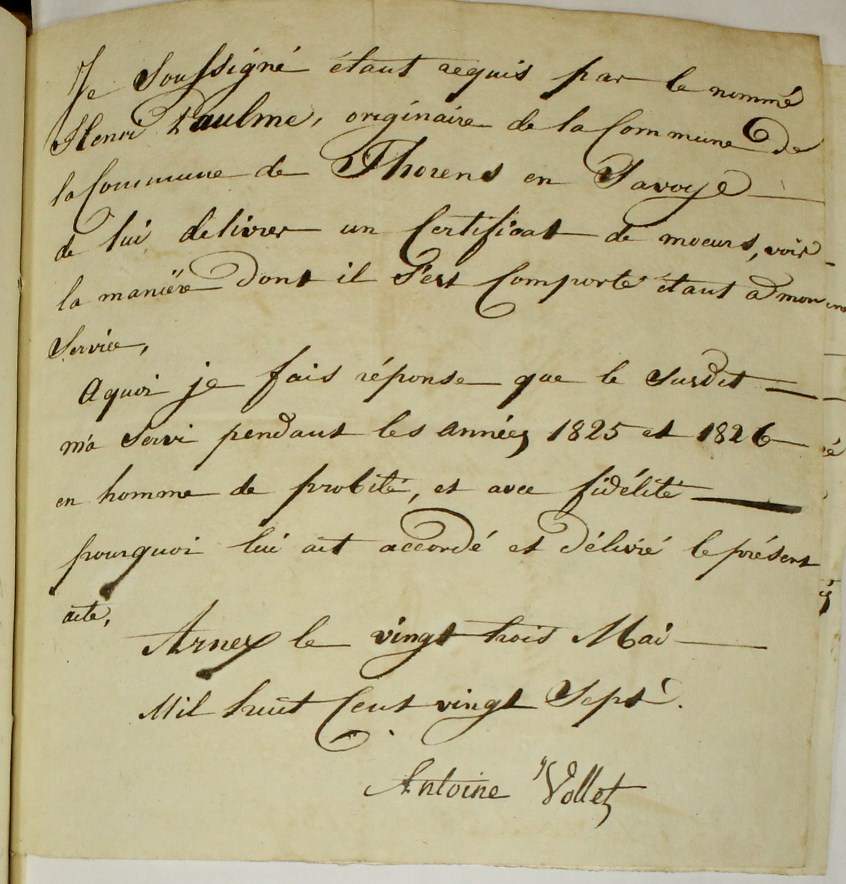 Je Soussigné étant requis par le nommé
Henri Paulme, originaire de la Commune de
la Commune de Thorens en Savoye
de lui delivrer un Certificat de moeurs, voir
la maniére dont il s'est Comporté étant a mon
Service,
Aquoi je fais réponse que le Susdit
m'a Servi pendant les années 1825 et 1826
en homme de probité, et avec fidélité
pourquoi lui ait accordé et délivré le présent
acte,
Arnex le vingt trois Mai
Mil huit Cent vingt Sept.
Antoine Vollet